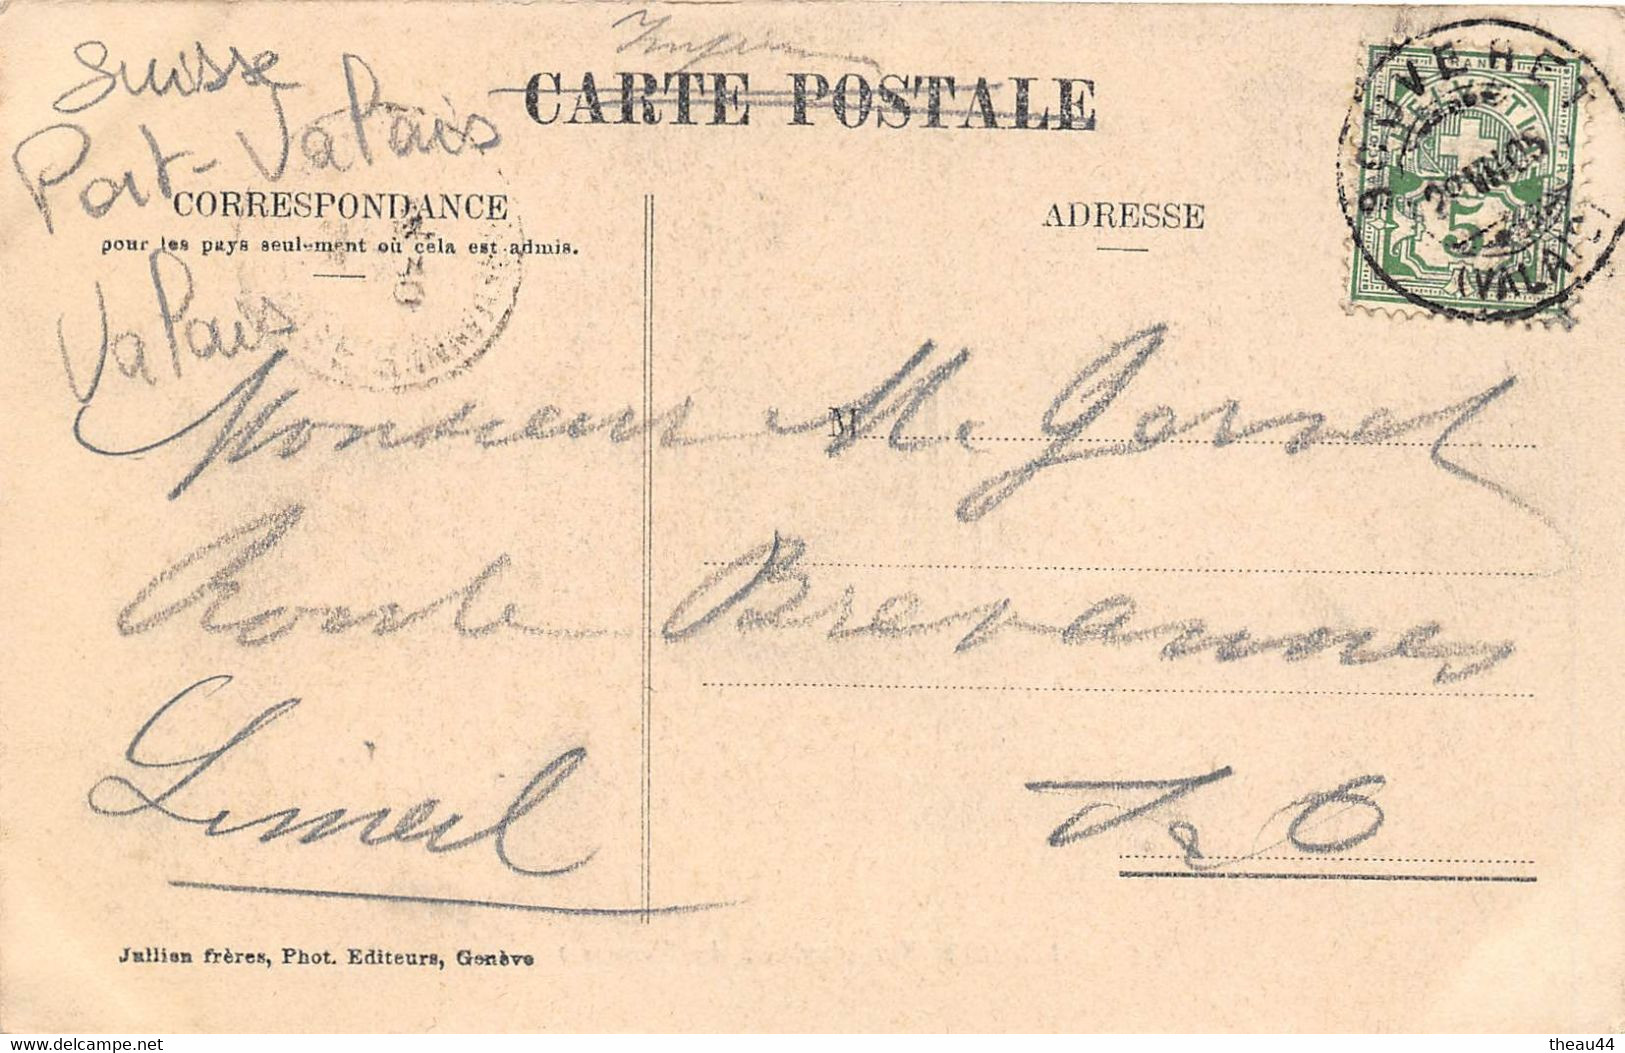 Suisse
Port-Valais
Valais
CARTE POSTALE
BOUVERET
28 VIII 05
(VALAIS)
5
CORRESPONDANCE
pour les pays seulement où cela est admis.
ADRESSE
M
Monsieur M. Gorret
Route Brevannes
Limeil
S & O
Jullien frères, Phot. Editeurs, Genève
delcampe.net
theau44